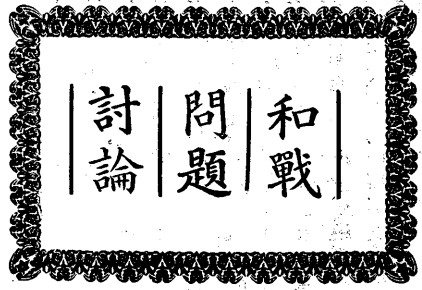 和戰
問題
討論